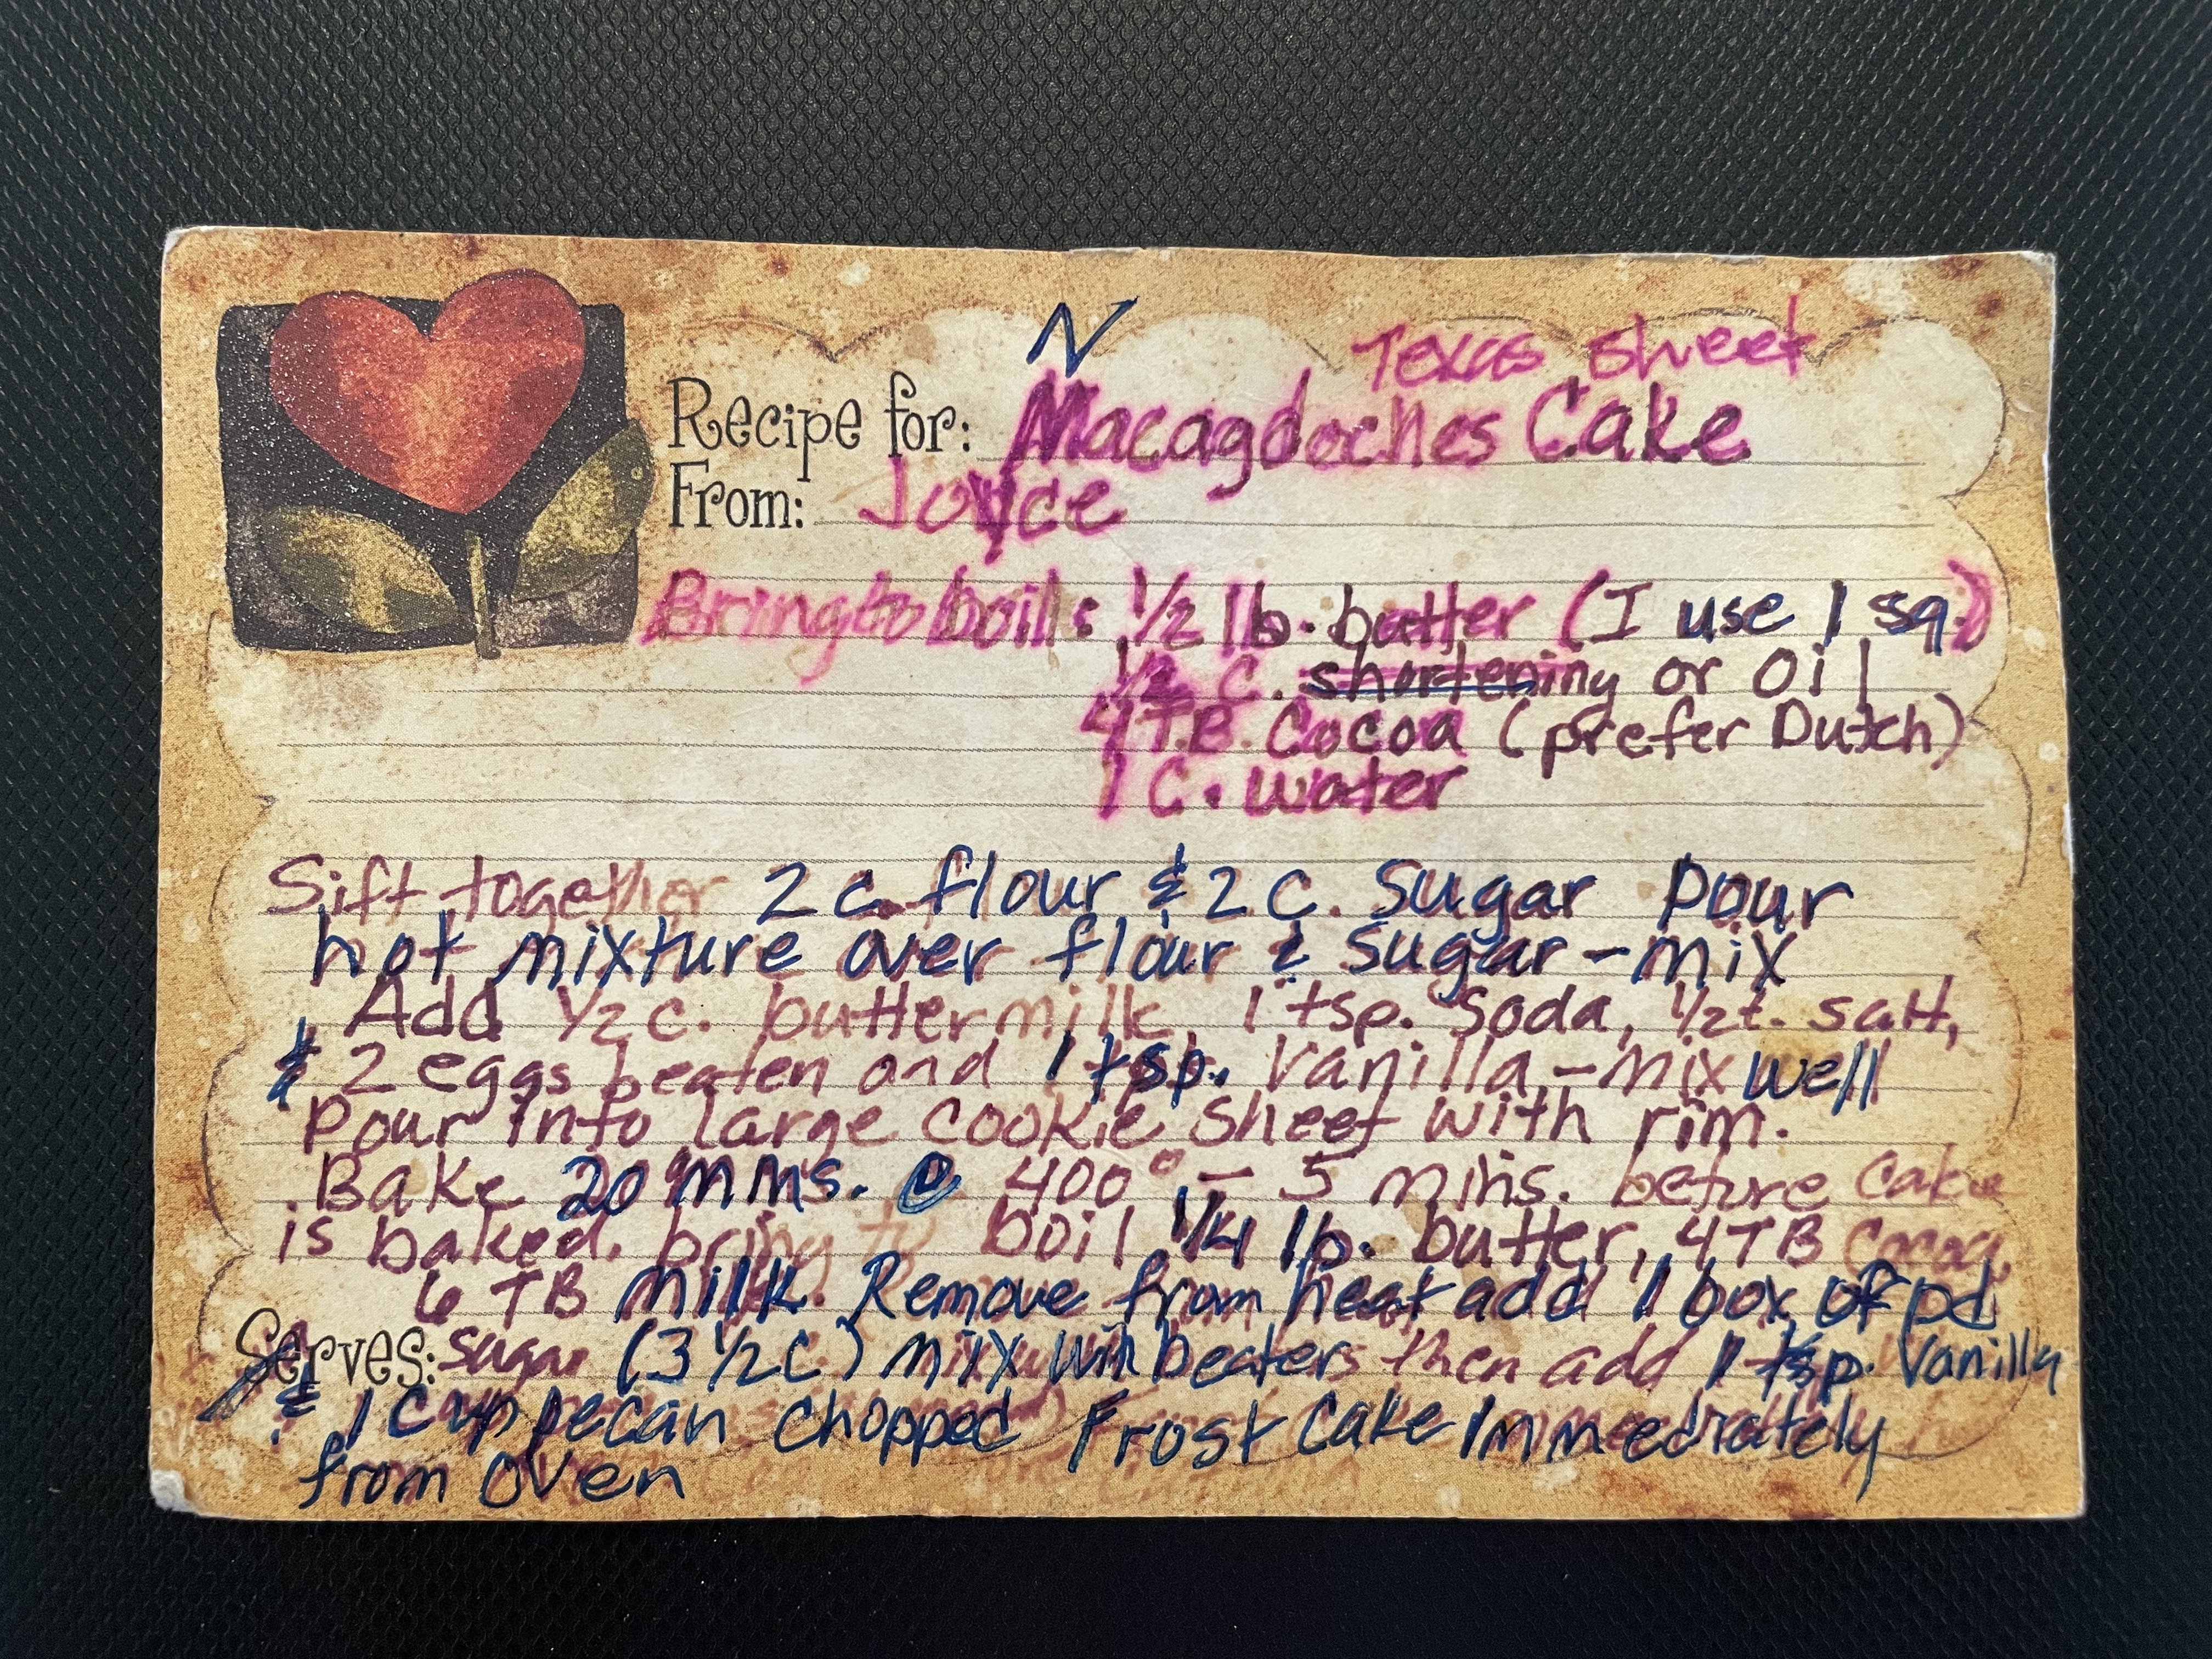 N
Texas sheet
Recipe for: Macagdoches Cake
From: Joyce
Bring to boil: 1/2 lb. butter (I use 1 sq.)
1/2 C. shortening or oil
4 TB. Cocoa (prefer Dutch)
1 C. water
Sift together 2 c. flour & 2 C. Sugar Pour
hot mixture over flour & sugar - mix
Add 1/2 c. buttermilk, 1 tsp. soda, 1/2 t. salt,
& 2 eggs beaten and 1 tsp. Vanilla - mix well
Pour into large cookie sheet with rim.
Bake 20 mins. @ 400° - 5 mins. before cake
is baked, bring to boil 1/4 lb. butter, 4 TB cocoa,
6 TB milk. Remove from heat add 1 box of pd
Serves: sugar (3 1/2 C) mix with beaters then add 1 tsp. Vanilla
& 1 cup pecan chopped Frost Cake Immediately
from oven